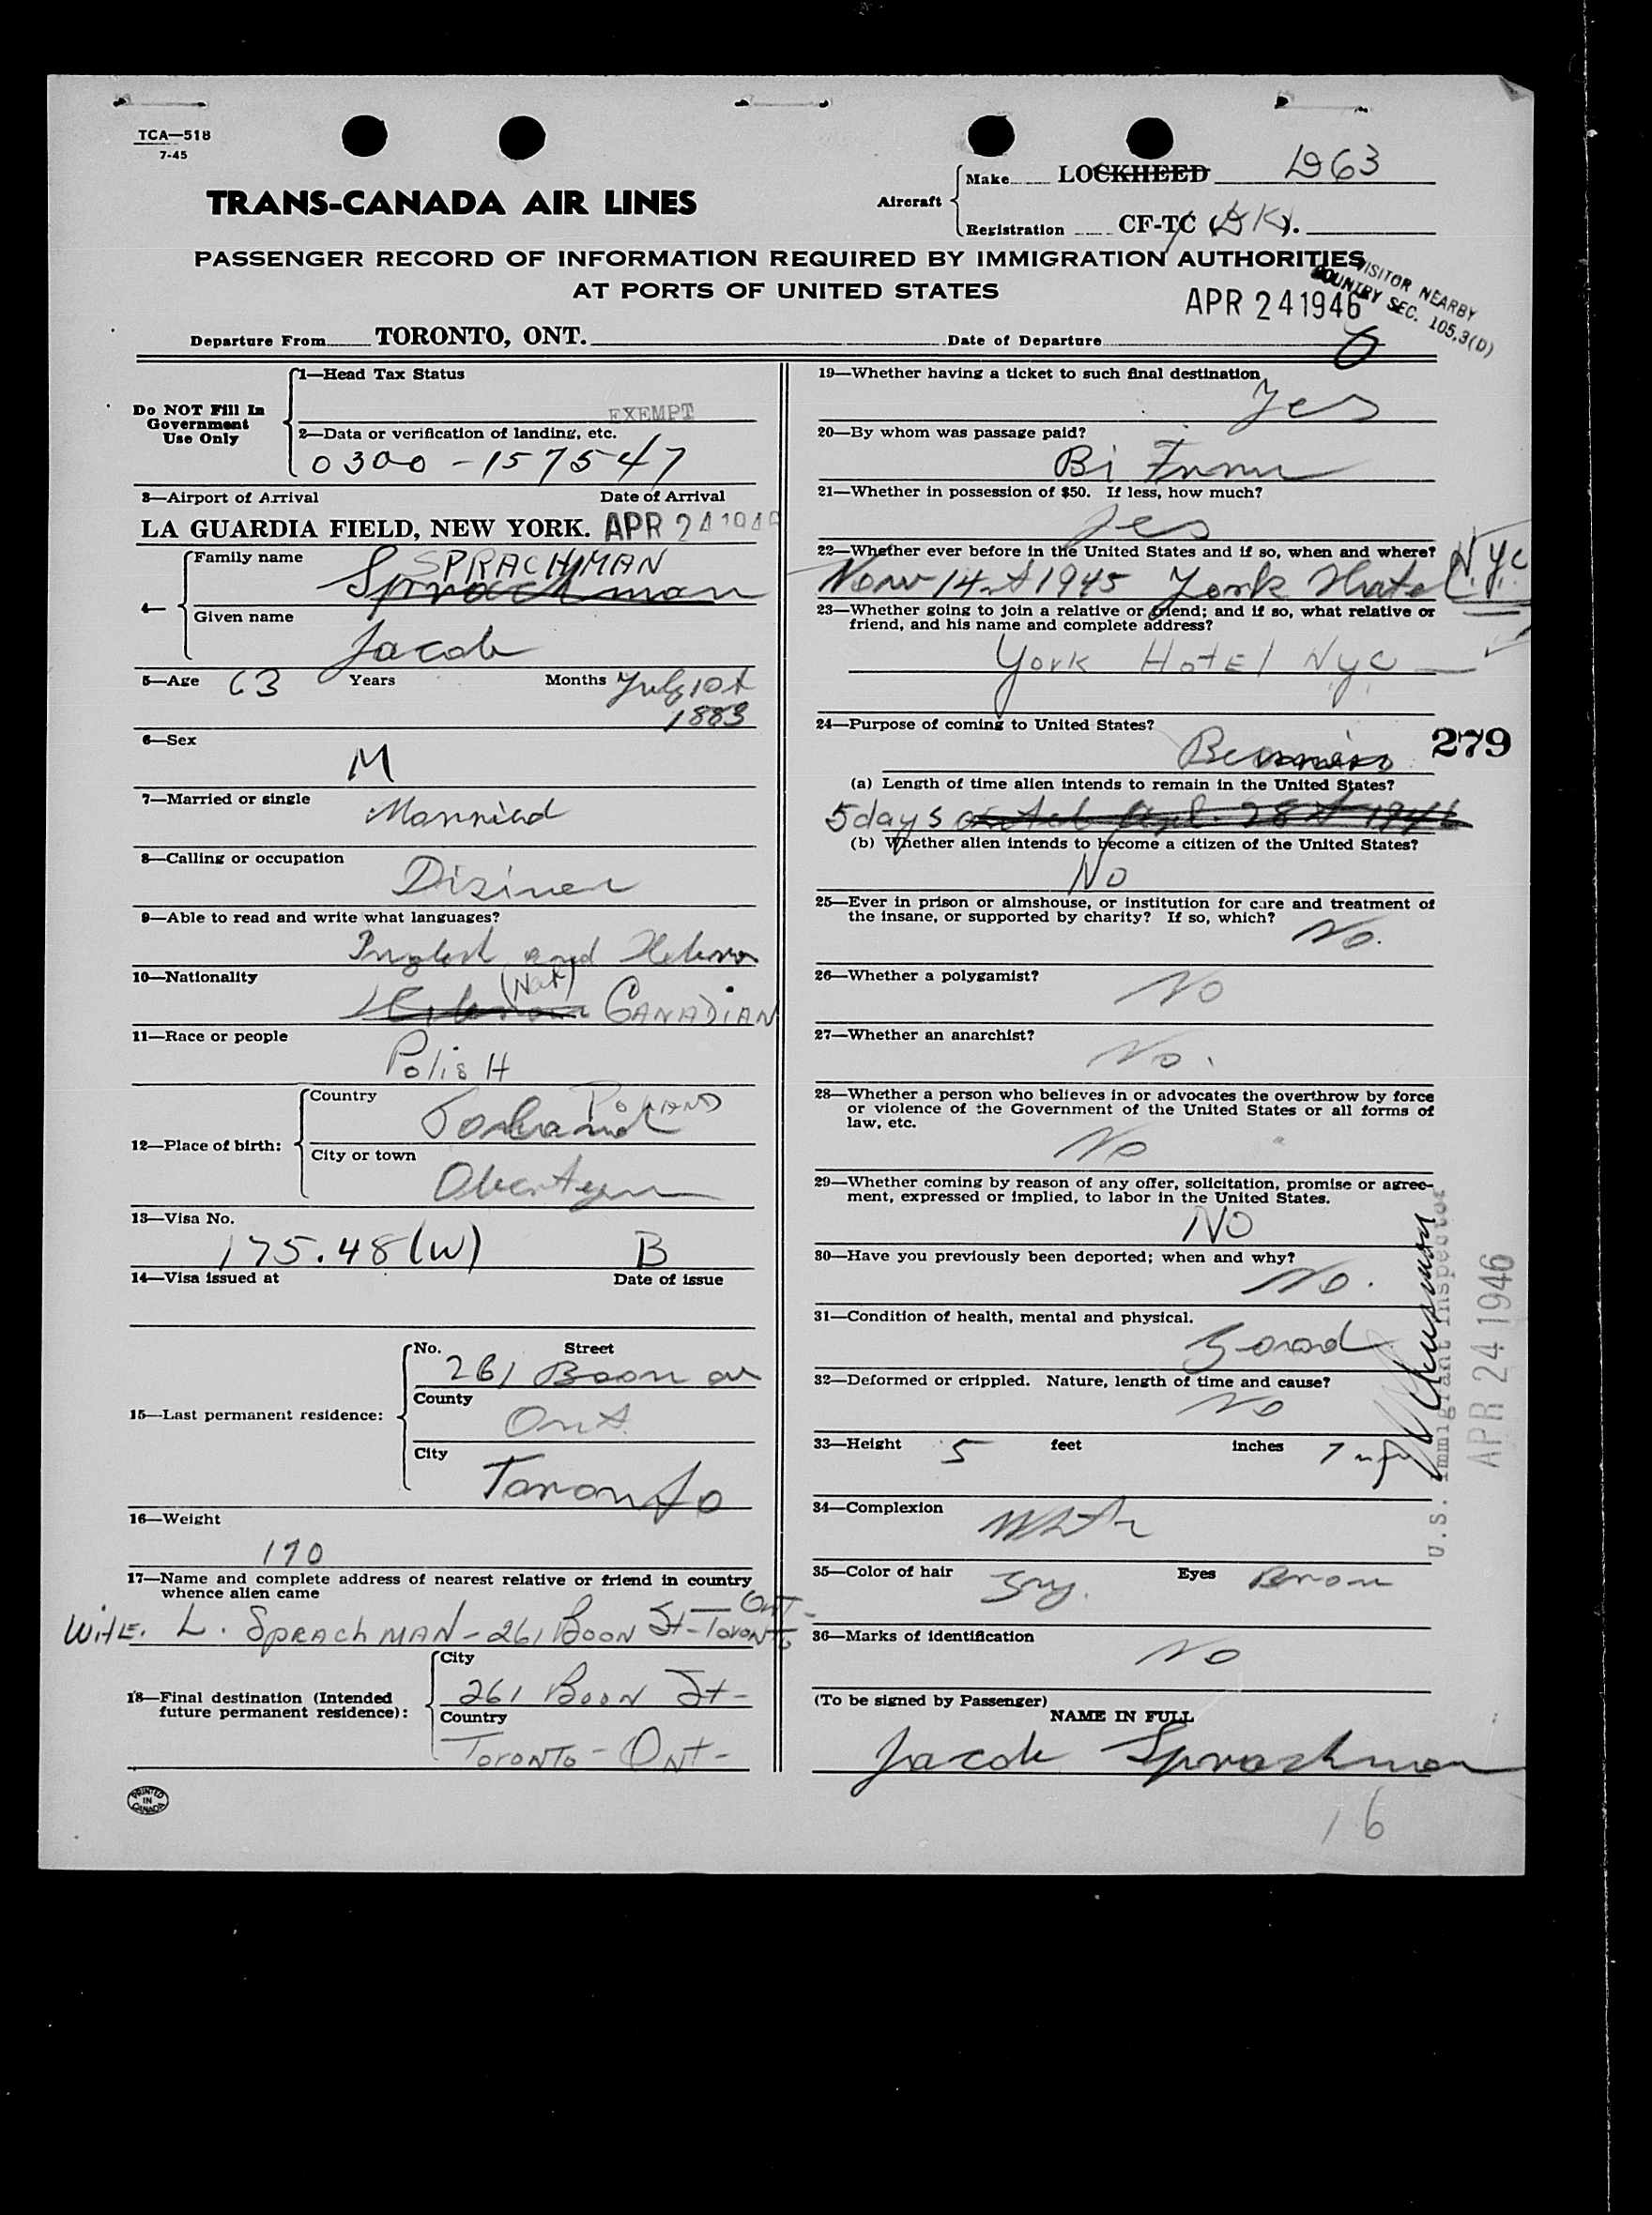 TCA—518
7-45
TRANS-CANADA AIR LINES
Aircraft
Make LOCKHEED
Registration CF-TC
PASSENGER RECORD OF INFORMATION REQUIRED BY IMMIGRATION AUTHORITIES
AT PORTS OF UNITED STATES
VISITOR NEARBY
COUNTRY SEC. 105.3(D)
APR 24 1946
Departure From TORONTO, ONT.
Date of Departure
Do NOT Fill In
Government
Use Only
1—Head Tax Status
EXEMPT
2—Data or verification of landing, etc.
0300-157547
3—Airport of Arrival Date of Arrival
LA GUARDIA FIELD, NEW YORK. APR 24 1946
4—
Family name
SPRACHMAN
Sprachman
Given name
Jacob
5—Age 63 Years Months July 10th
1883
6—Sex
M
7—Married or single
Married
8—Calling or occupation
Disiner
9—Able to read and write what languages?
and
10—Nationality
(Nat)
CANADIAN
11—Race or people
PolisH
12—Place of birth:
Country
POLAND
City or town
13—Visa No.
175.48(W) B
14—Visa issued at Date of issue
15—Last permanent residence:
No. Street
261 Boon av
County
Ont
City
Toronto
16—Weight
170
17—Name and complete address of nearest relative or friend in country
whence alien came
Ont-
WifE. L. SPRACHMAN-261 BOON St-Toronto
18—Final destination (Intended
future permanent residence):
City
261 BOON St-
Country
Toronto-Ont-
PRINTED
IN
CANADA
19—Whether having a ticket to such final destination
Yes
20—By whom was passage paid?
Bi
21—Whether in possession of $50. If less, how much?
Yes
22—Whether ever before in the United States and if so, when and where?
14 1945 York Hotel N.Y.C.
23—Whether going to join a relative or friend; and if so, what relative or
friend, and his name and complete address?
York HotEl NYC
24—Purpose of coming to United States?
279
(a) Length of time alien intends to remain in the United States?
5 days
(b) Whether alien intends to become a citizen of the United States?
No
25—Ever in prison or almshouse, or institution for care and treatment of
the insane, or supported by charity? If so, which?
No.
26—Whether a polygamist?
No
27—Whether an anarchist?
No.
28—Whether a person who believes in or advocates the overthrow by force
or violence of the Government of the United States or all forms of
law, etc.
No
29—Whether coming by reason of any offer, solicitation, promise or agree-
ment, expressed or implied, to labor in the United States.
NO
30—Have you previously been deported; when and why?
No.
31—Condition of health, mental and physical.
32—Deformed or crippled. Nature, length of time and cause?
No
33—Height 5 feet inches 7
34—Complexion
35—Color of hair Eyes Brown
36—Marks of identification
No
U.S. Immigrant Inspector
APR 24 1946
(To be signed by Passenger)
NAME IN FULL
Jacob Sprachman
16